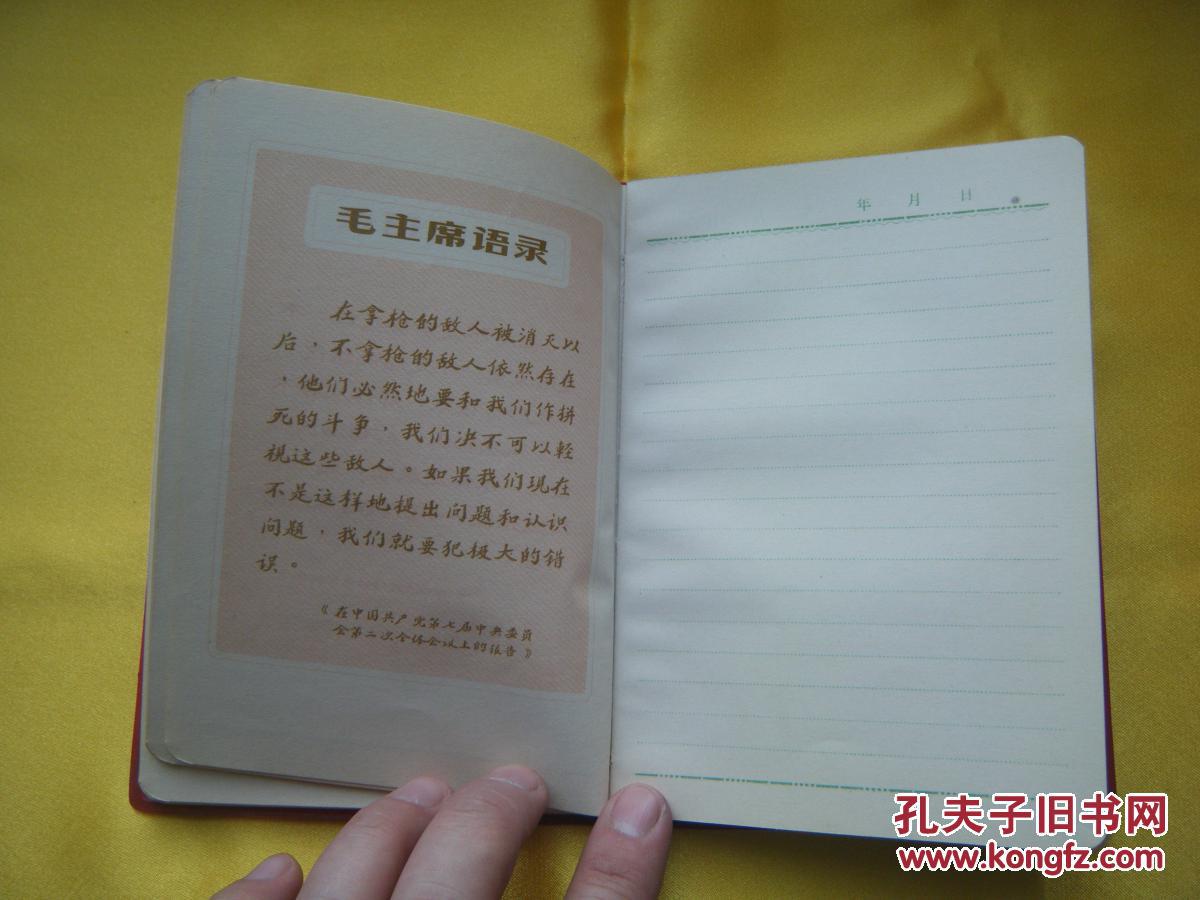 毛主席语录
在拿枪的敌人被消灭以
后，不拿枪的敌人依然存在
，他们必然地要和我们作拼
死的斗争，我们决不可以轻
视这些敌人。如果我们现在
不是这样地提出问题和认识
问题，我们就要犯极大的错
误。
《在中国共产党第七届中央委员
会第二次全体会议上的报告》
年 月 日
孔夫子旧书网
www.kongfz.com